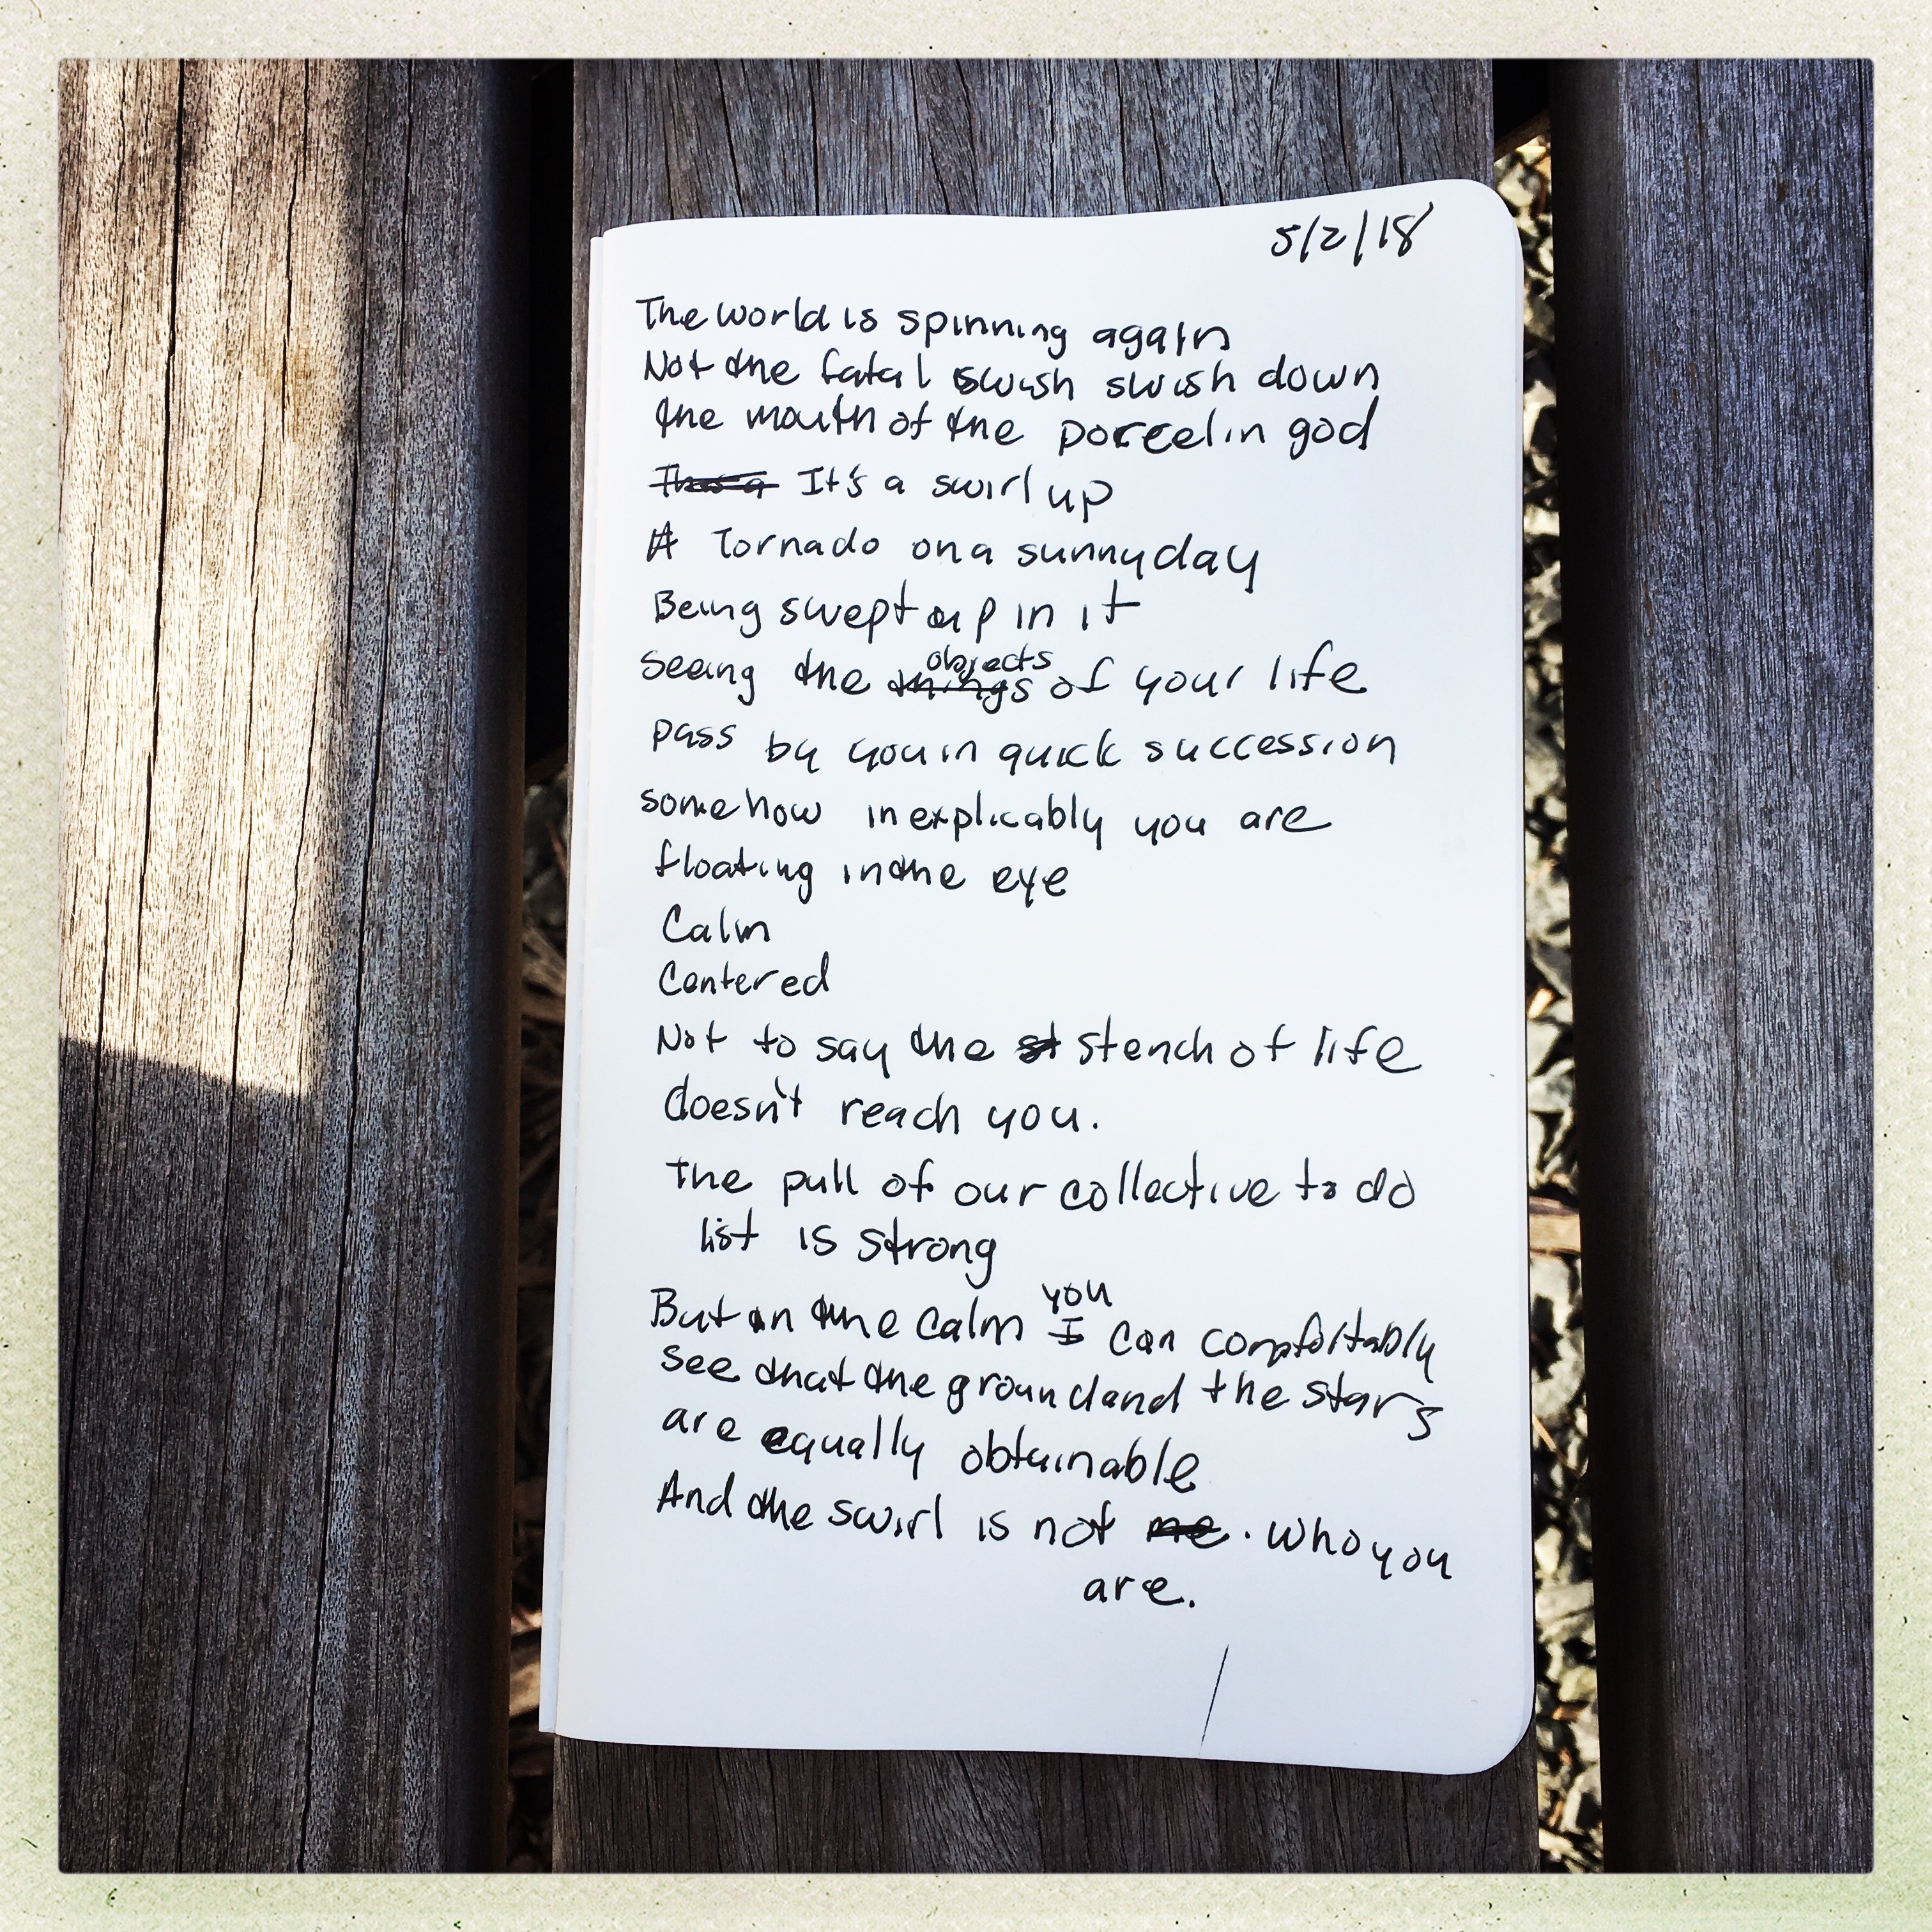 5/2/18
The world is spinning again
Not the fatal swish swish down
the mouth of the porcelin god
It's a swirl up
A Tornado on a sunny day
Being swept up in it
Seeing the things objects of your life
pass by you in quick succession
somehow inexplicably you are
floating in the eye
Calm
Centered
Not to say the st stench of life
doesn't reach you.
The pull of our collective to do
list is strong
But in the calm I you can comfortably
see that the ground and the stars
are equally obtainable
And the swirl is not me. who you
are.